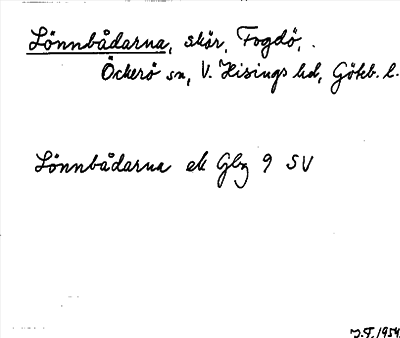 Lönnbådarna, skär, Fogdö,.
Öckerö sn, V. Hisings hd, Göteb. l.
Lönnbådarna ek Gbg 9 SV
J.T. 1954